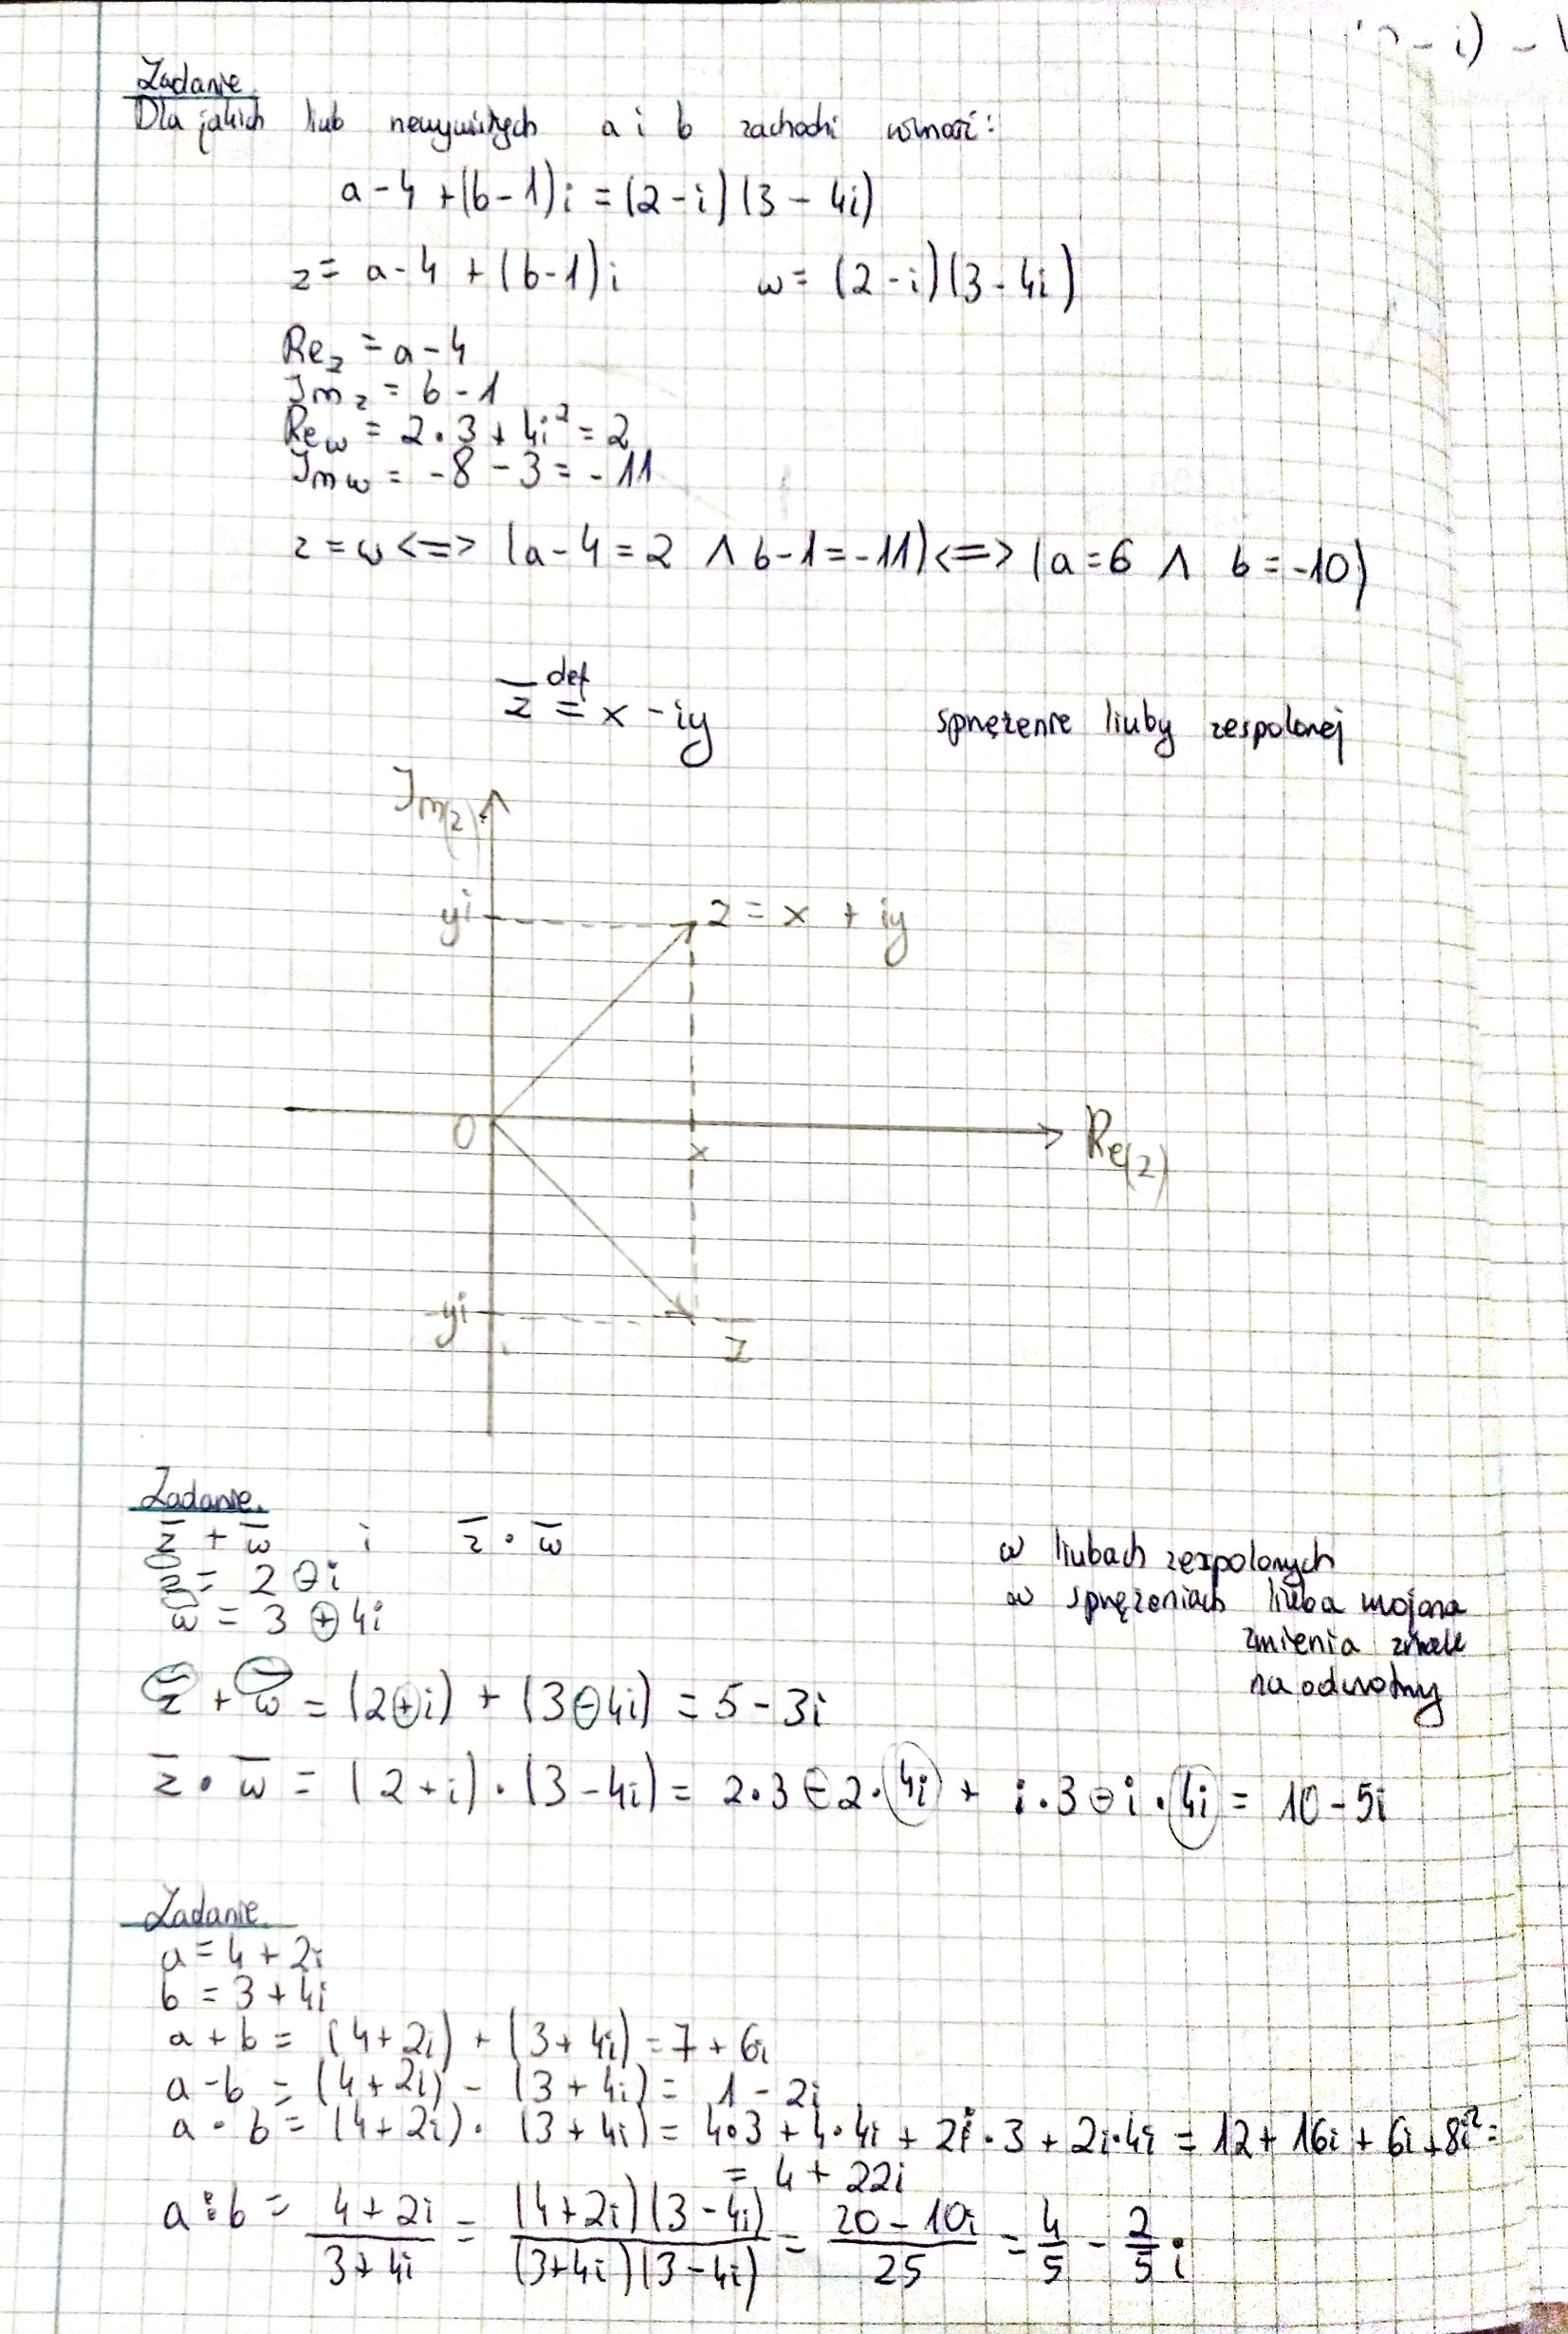 - i) -
Zadanie
Dla jakich liczb rzeczywistych a i b zachodzi równość:
a - 4 + (b - 1)i = (2 - i)(3 - 4i)
z = a - 4 + (b - 1)i    w = (2 - i)(3 - 4i)
Re_z = a - 4
Im_z = b - 1
Re_w = 2 · 3 + 4i² = 2
Im_w = -8 - 3 = -11
z = w <=> (a - 4 = 2 ∧ b - 1 = -11) <=> (a = 6 ∧ b = -10)
z̄ def= x - iy    sprzężenie liczby zespolonej
Im(z)
yi    z = x + iy
0    x    Re(z)
-yi    z̄
Zadanie.
z̄ + w̄    i    z̄ · w̄
z = 2 - i
w = 3 + 4i
w liczbach zespolonych
w sprzężeniach liczba urojona
zmienia znak
na odwrotny
z̄ + w̄ = (2 + i) + (3 - 4i) = 5 - 3i
z̄ · w̄ = (2 + i) · (3 - 4i) = 2 · 3 - 2 · 4i + i · 3 - i · 4i = 10 - 5i
Zadanie.
a = 4 + 2i
b = 3 + 4i
a + b = (4 + 2i) + (3 + 4i) = 7 + 6i
a - b = (4 + 2i) - (3 + 4i) = 1 - 2i
a · b = (4 + 2i) · (3 + 4i) = 4 · 3 + 4 · 4i + 2i · 3 + 2i · 4i = 12 + 16i + 6i + 8i² =
= 4 + 22i
a : b = (4 + 2i)/(3 + 4i) = (4 + 2i)(3 - 4i)/(3 + 4i)(3 - 4i) = (20 - 10i)/25 = 4/5 - 2/5 i